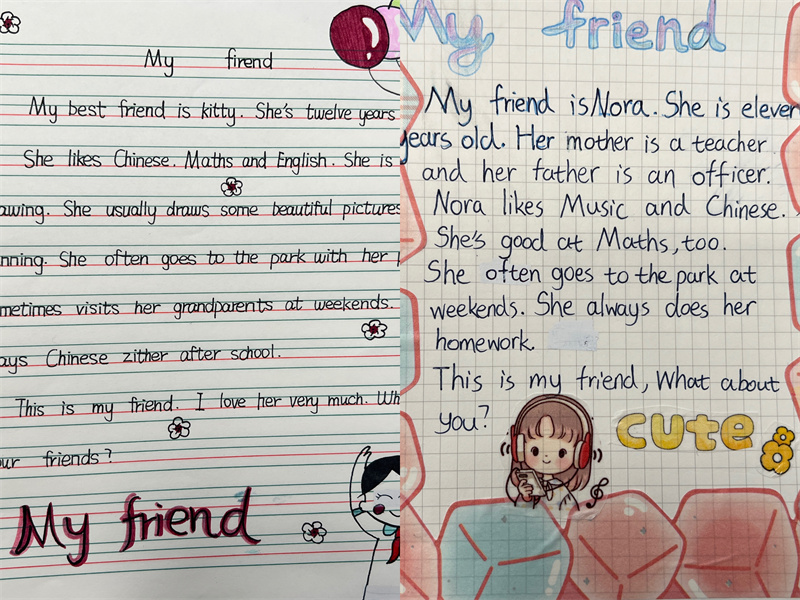 My firend
My best friend is kitty. She's twelve years
She likes Chinese. Maths and English. She is
awing. She usually draws some beautiful pictures
nning. She often goes to the park with her
metimes visits her grandparents at weekends.
ays Chinese zither after school.
This is my friend. I love her very much. Wh
ur friends?
My friend
My friend
My friend is Nora. She is eleven
years old. Her mother is a teacher
and her father is an officer.
Nora likes Music and Chinese.
She's good at Maths, too.
She often goes to the park at
weekends. She always does her
homework.
This is my friend, What about
you?
cute